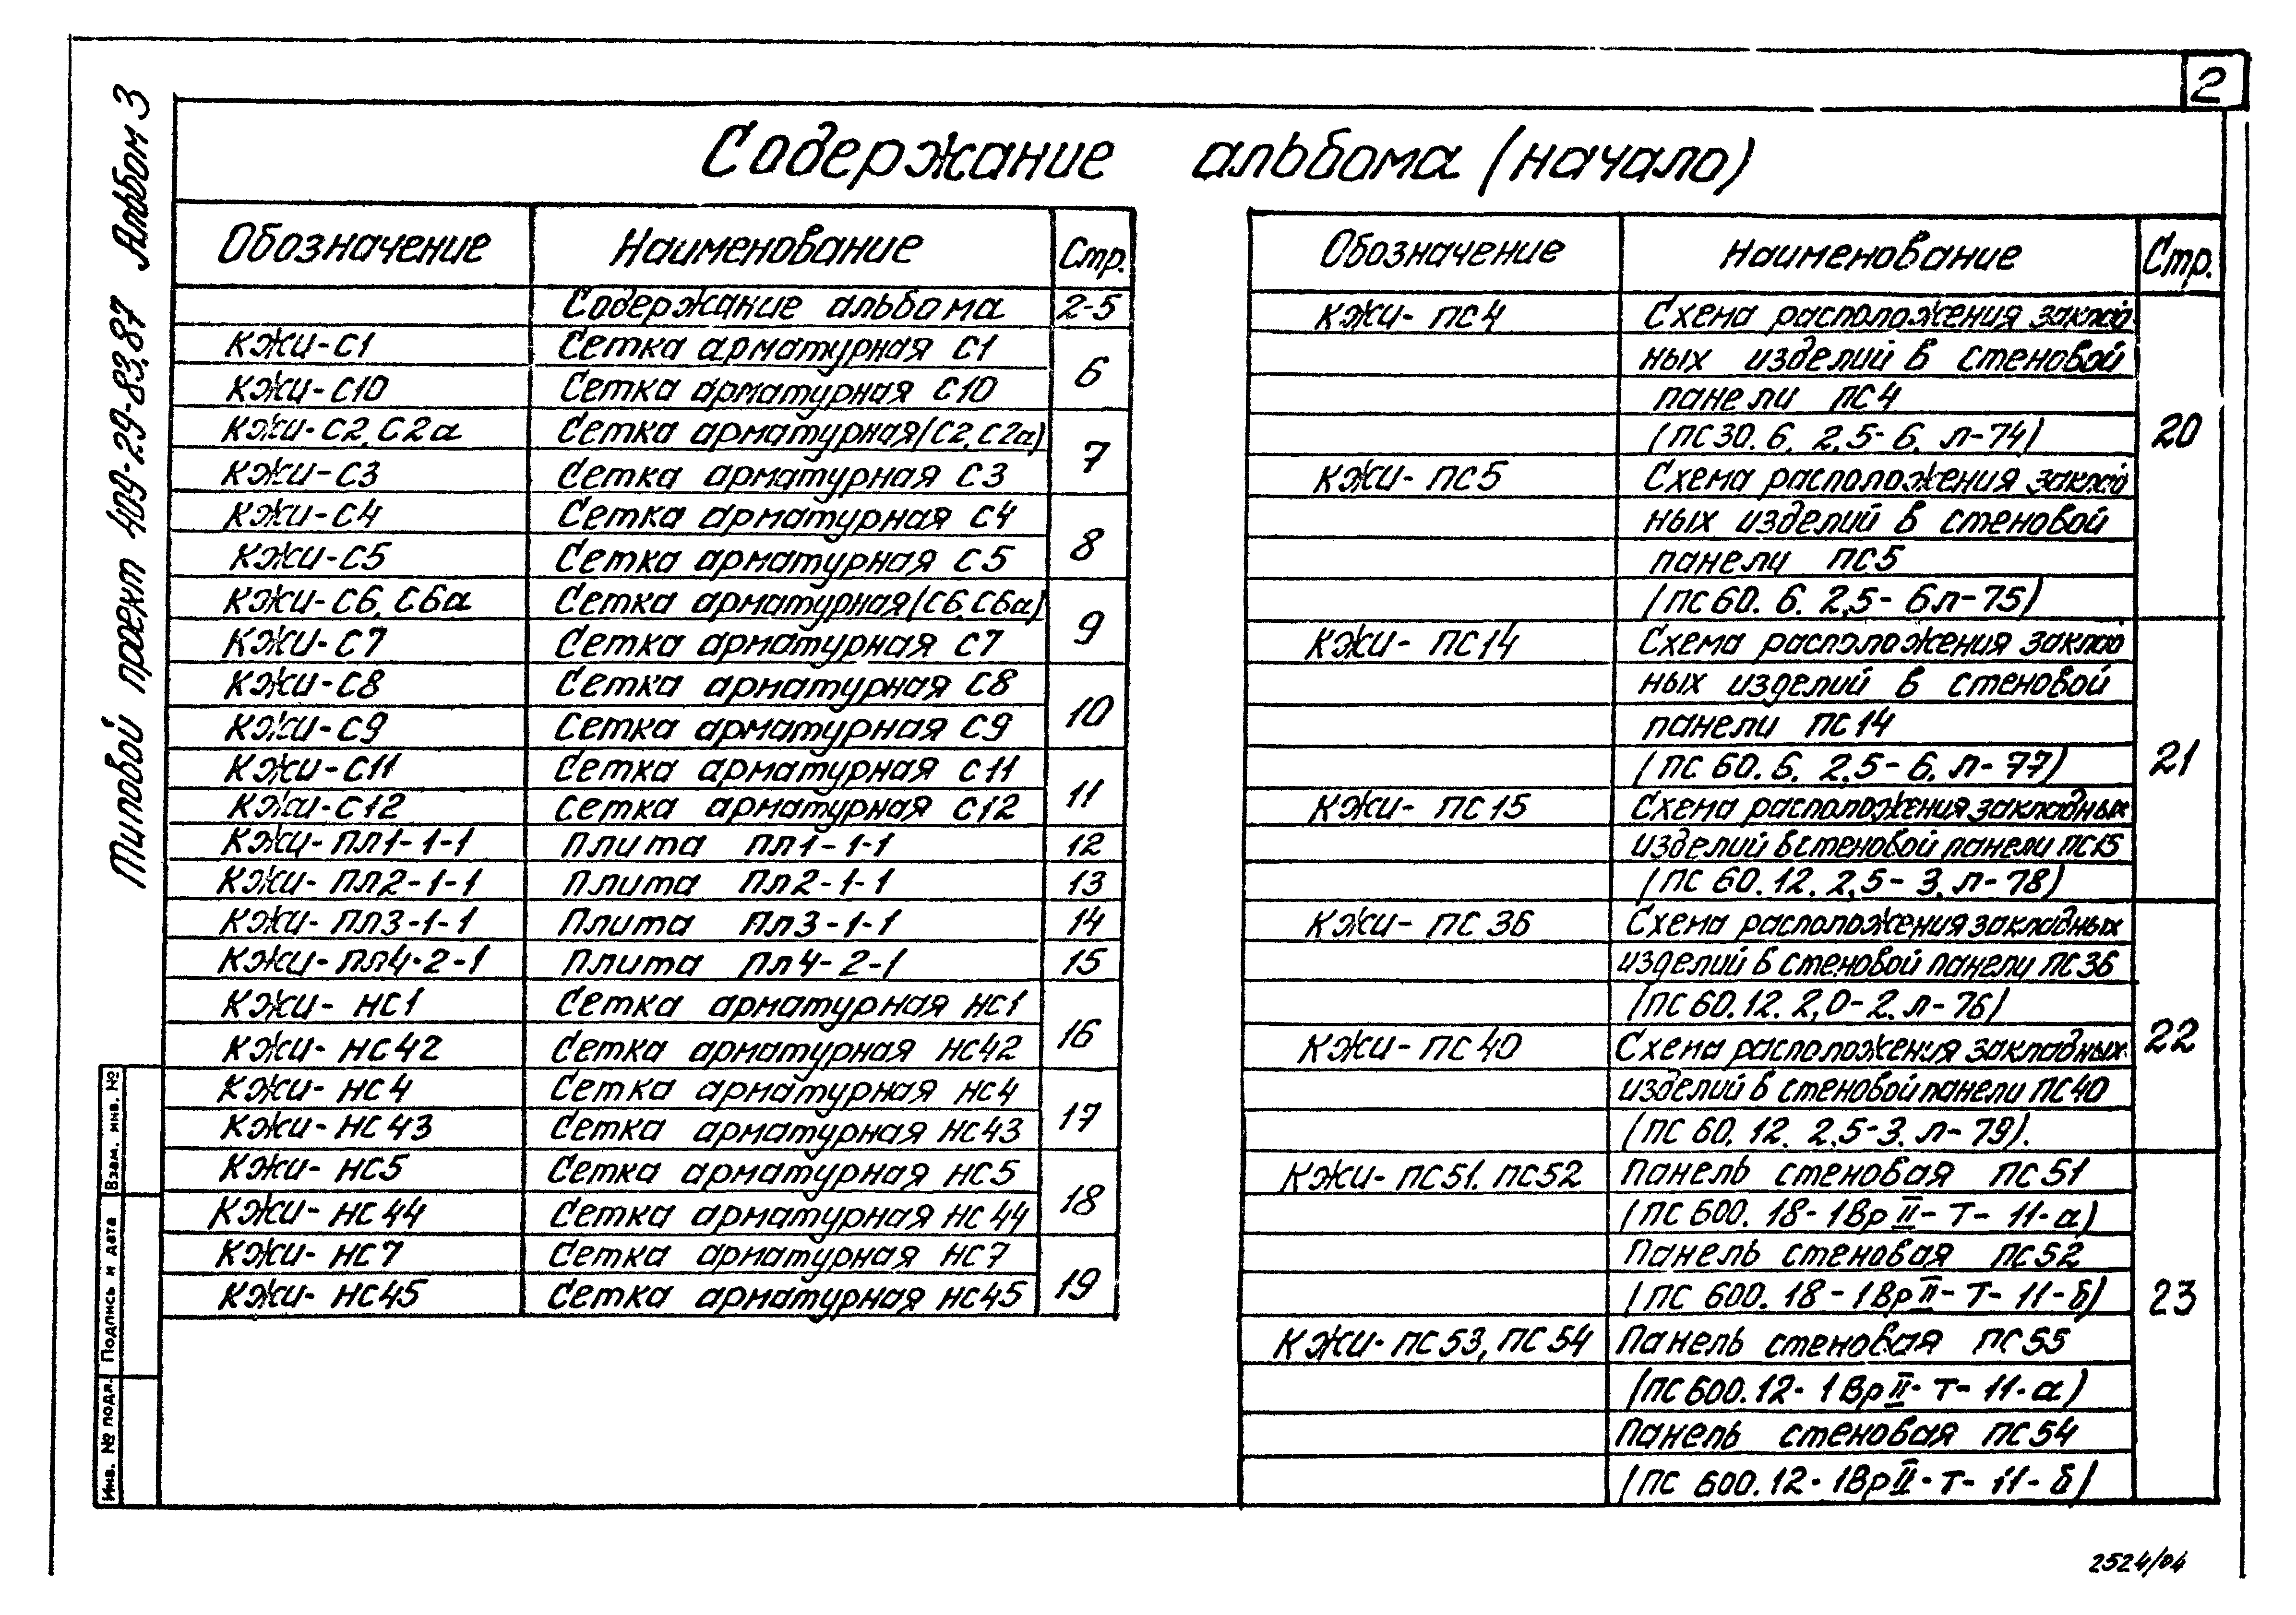 2
Типовой проект 409-29-83.87 Альбом 3
Содержание альбома (начало)
Обозначение Наименование Стр.
Содержание альбома 2-5
КЖИ-С1 Сетка арматурная С1 6
КЖИ-С10 Сетка арматурная С10
КЖИ-С2, С2а Сетка арматурная (С2, С2а) 7
КЖИ-С3 Сетка арматурная С3
КЖИ-С4 Сетка арматурная С4 8
КЖИ-С5 Сетка арматурная С5
КЖИ-С6, С6а Сетка арматурная (С6, С6а) 9
КЖИ-С7 Сетка арматурная С7
КЖИ-С8 Сетка арматурная С8 10
КЖИ-С9 Сетка арматурная С9
КЖИ-С11 Сетка арматурная С11 11
КЖИ-С12 Сетка арматурная С12
КЖИ-ПЛ1-1-1 Плита ПЛ1-1-1 12
КЖИ-ПЛ2-1-1 Плита ПЛ2-1-1 13
КЖИ-ПЛ3-1-1 Плита ПЛ3-1-1 14
КЖИ-ПЛ4-2-1 Плита ПЛ4-2-1 15
КЖИ-НС1 Сетка арматурная НС1 16
КЖИ-НС42 Сетка арматурная НС42
КЖИ-НС4 Сетка арматурная НС4 17
КЖИ-НС43 Сетка арматурная НС43
КЖИ-НС5 Сетка арматурная НС5 18
КЖИ-НС44 Сетка арматурная НС44
КЖИ-НС7 Сетка арматурная НС7 19
КЖИ-НС45 Сетка арматурная НС45
Обозначение Наименование Стр.
КЖИ-ПС4 Схема расположения заклад
ных изделий в стеновой
панели ПС4
(ПС30.6. 2,5-6. л-74) 20
КЖИ-ПС5 Схема расположения заклад
ных изделий в стеновой
панели ПС5
(ПС60. 6. 2,5-6л-75)
КЖИ-ПС14 Схема расположения заклад
ных изделий в стеновой
панели ПС14
(ПС 60. 6. 2,5-6. л-77) 21
КЖИ-ПС15 Схема расположения закладных
изделий в стеновой панели ПС15
(ПС 60.12. 2,5-3. л-78)
КЖИ-ПС36 Схема расположения закладных
изделий в стеновой панели ПС36
(ПС60.12. 2,0-2. л-76)
КЖИ-ПС40 Схема расположения закладных 22
изделий в стеновой панели ПС40
(ПС60.12. 2,5-3. л-79).
КЖИ-ПС51. ПС52 Панель стеновая ПС51
(ПС600. 18-1ВрII-Т-11-а)
Панель стеновая ПС52
(ПС 600. 18-1ВрII-Т-11-б) 23
КЖИ-ПС53, ПС54 Панель стеновая ПС53
(ПС600.12-1ВрII-Т-11-а)
Панель стеновая ПС54
(ПС 600.12-1ВрII-Т-11-б)
Взам. инв. №
Подпись и дата
Инв. № подл.
2524/04